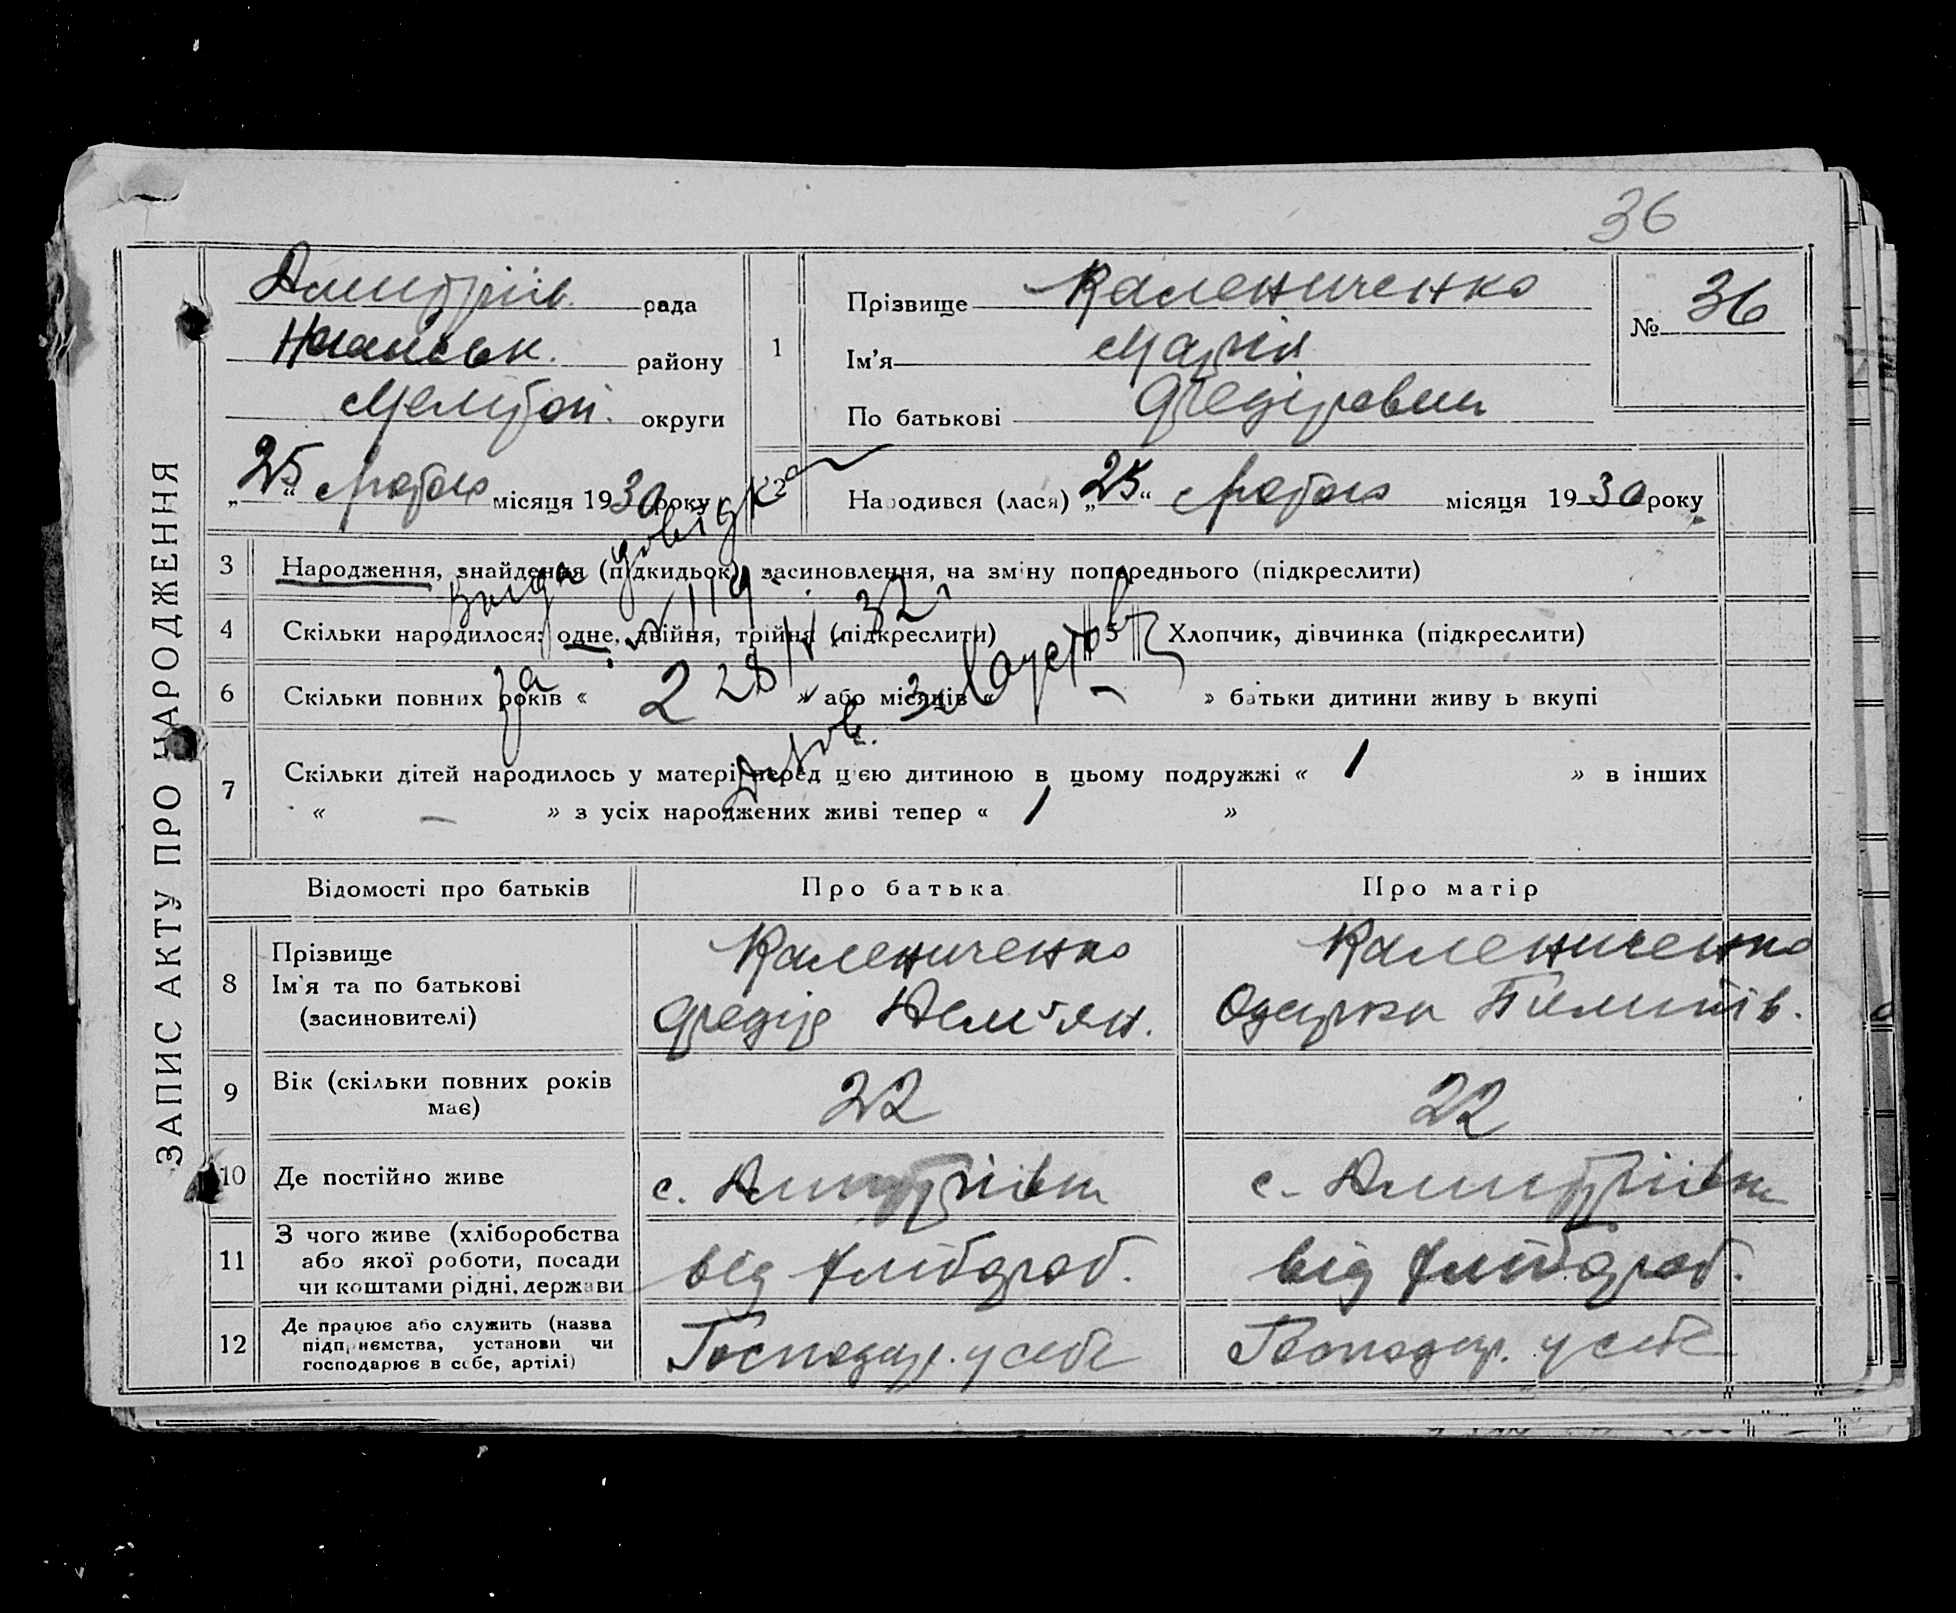 36
ЗАПИС АКТУ ПРО НАРОДЖЕННЯ
Дмитрїїв. рада
Ногайськ. району
Мелітоп. округи
„25“ Лютого місяця 1930 року
1
Прізвище Калениченко
Ім’я Марія
По батькові Федіровна
№ 36
Народився (лася) „25“ Лютого місяця 1930 року
3 Народження, знайдення (підкидьок), засиновлення, на зміну попереднього (підкреслити)
4 Скільки народилося: одне, двійня, трійня (підкреслити) 5 Хлопчик, дівчинка (підкреслити)
6 Скільки повних років « 2 » або місяців « – » батьки дитини живуть вкупі
7 Скільки дітей народилось у матері перед цією дитиною в цьому подружжі « 1 » в інших
« – » з усіх народжених живі тепер « 1 »
Видана довідка
за № 119
28/V 32
Відомості про батьків Про батька Про матір
8 Прізвище Калениченко Калениченко
Ім’я та по батькові Федір Дем’ян. Одарка
(засиновителі)
9 Вік (скільки повних років 22 22
має)
10 Де постійно живе с. Дмитрїївка с. Дмитрїївка
11 З чого живе (хліборобства
або якої роботи, посади від хлібороб. від хлібороб.
чи коштами рідні, держави
12 Де працює або служить (назва
підприємства, установи чи Господар. у себе Господар. у себе
господарює в себе, артілі)